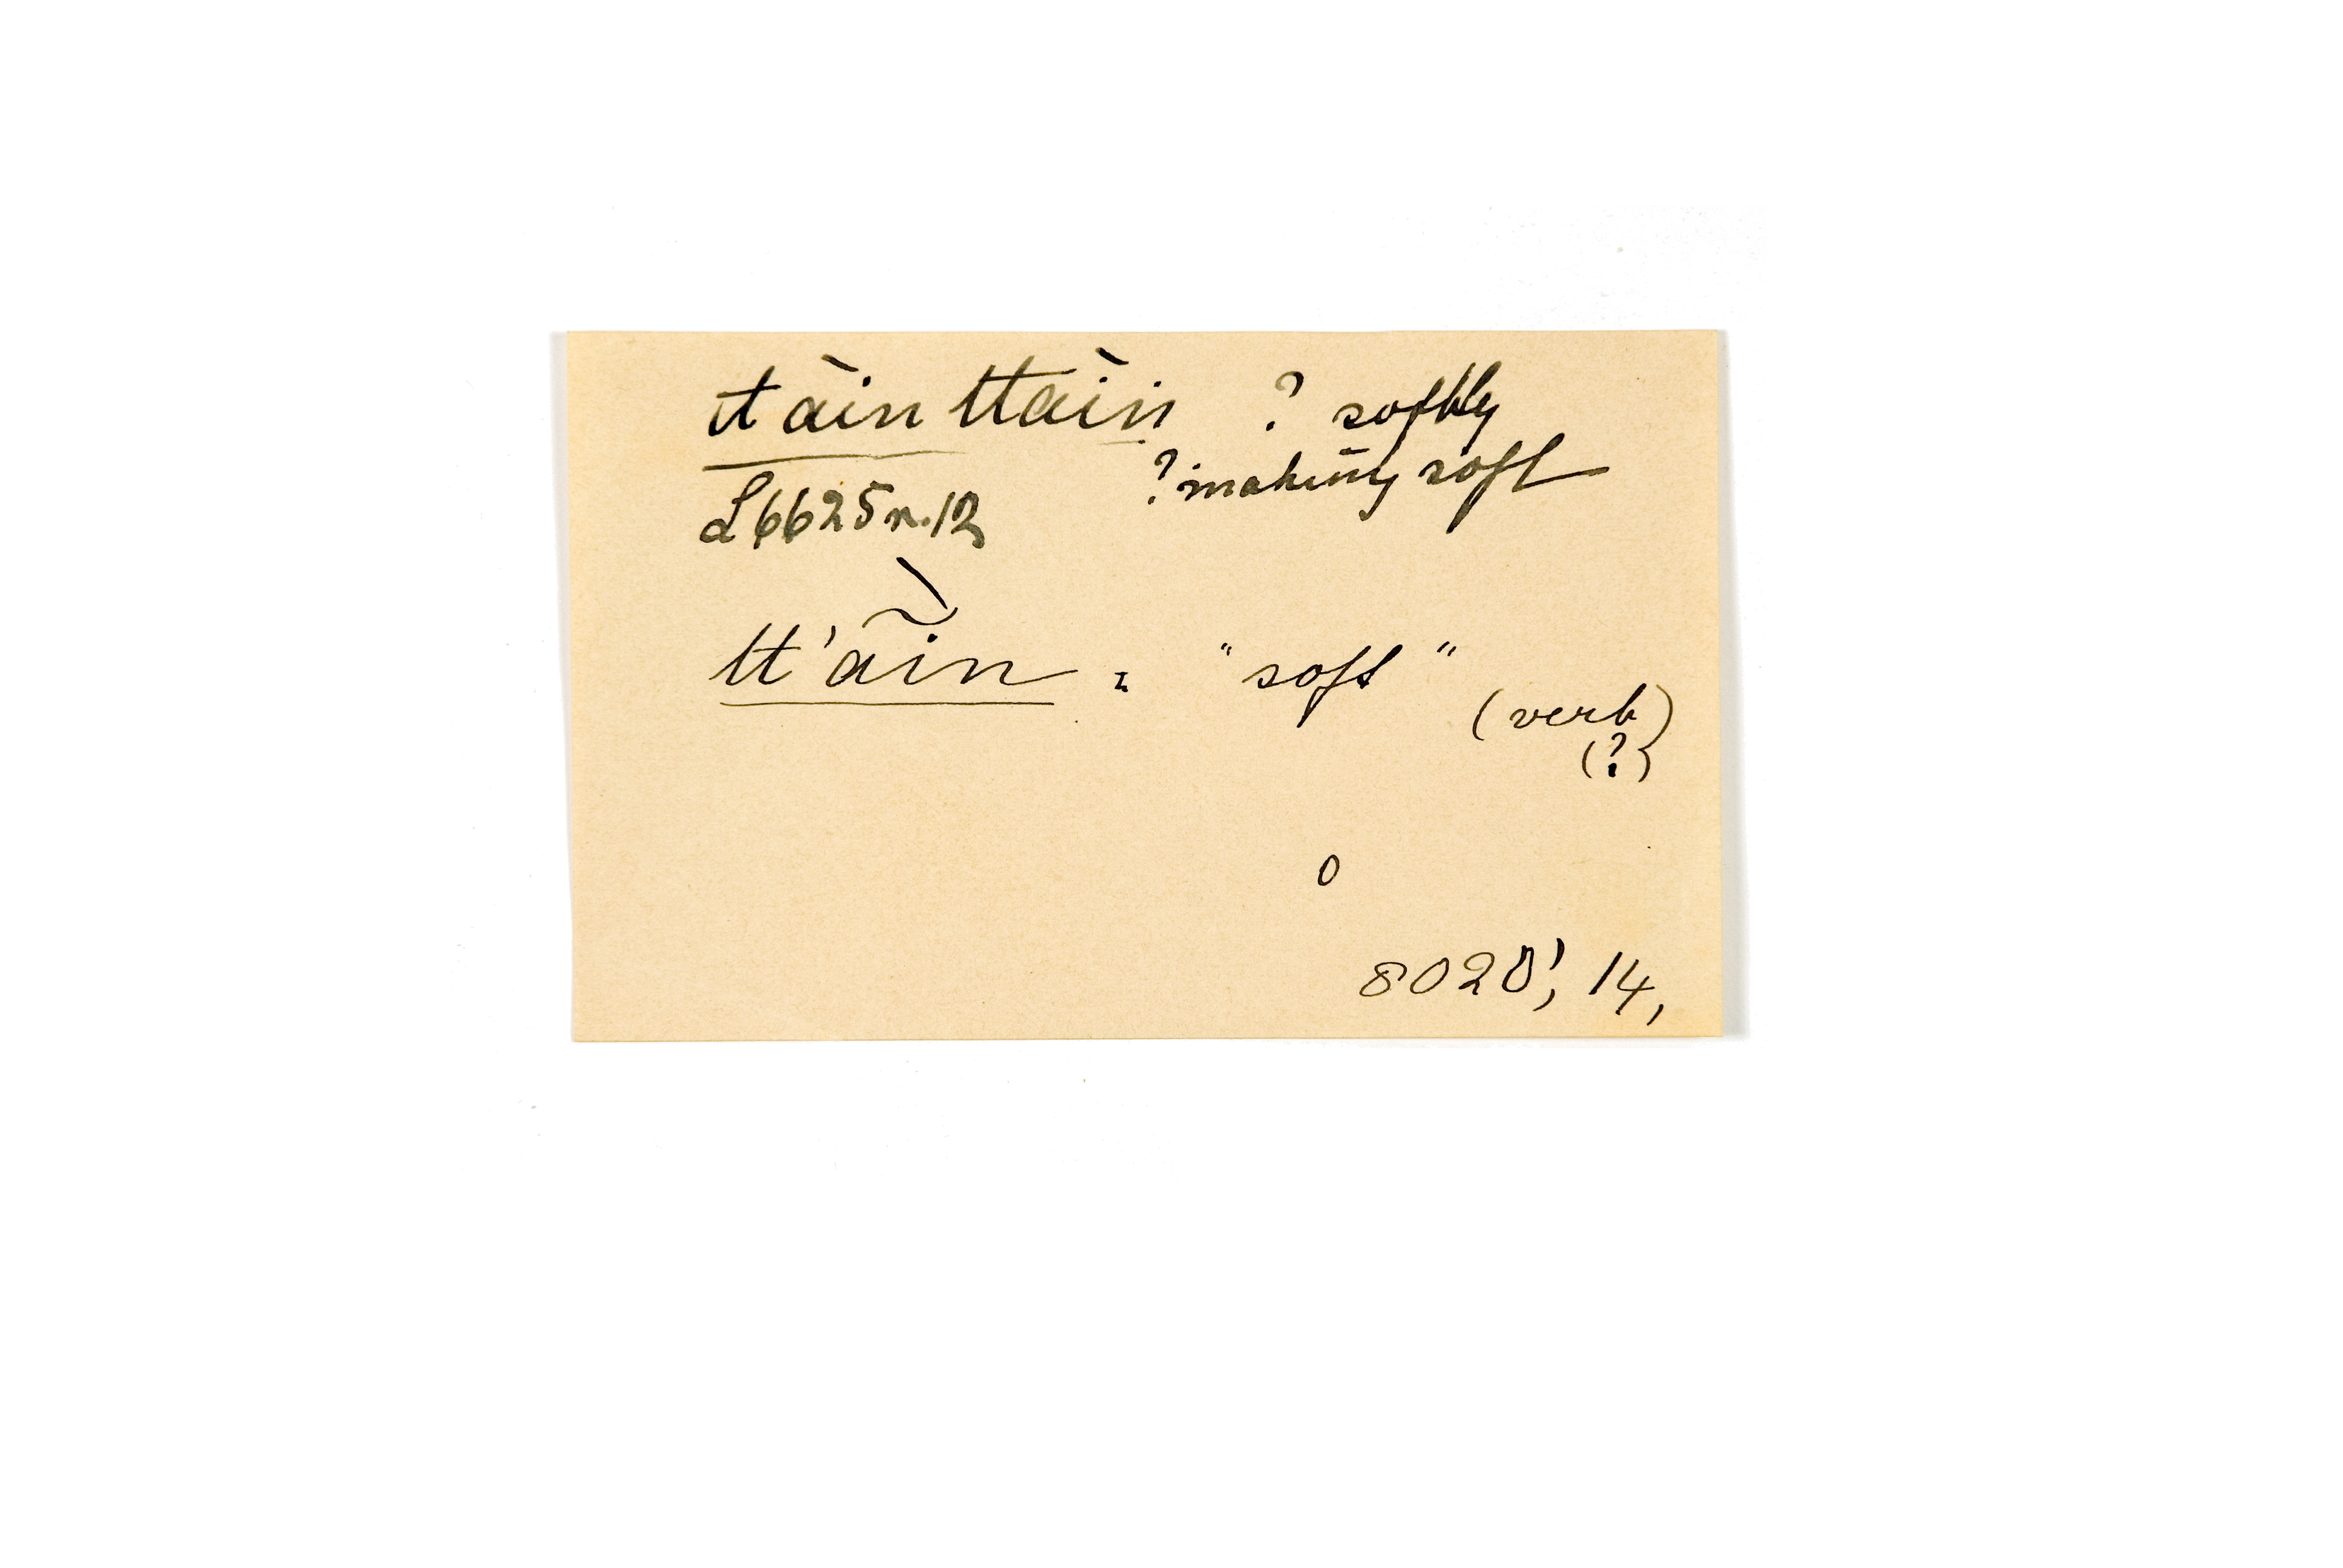 tt àin ttàin ? softly
? making soft
L6625 n. 12
tt'ā̀in = "soft"
(verb)
(?)
0
8020', 14,